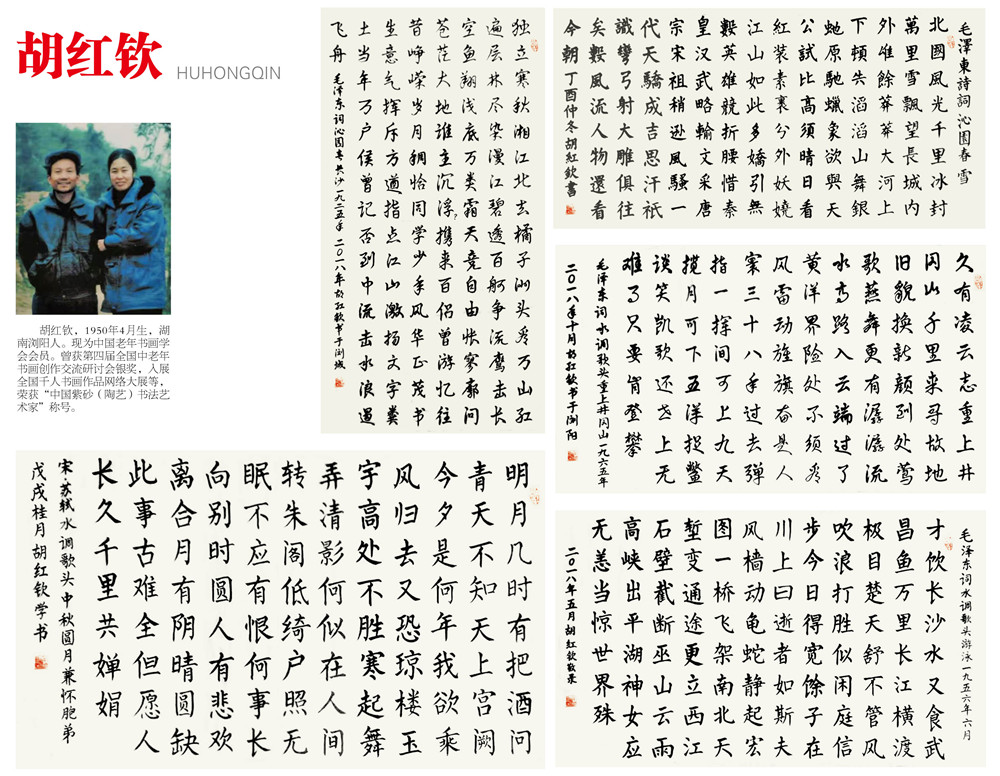 胡红钦 HUHONGQIN
胡红钦，1950年4月生，湖
南浏阳人。现为中国老年书画学
会会员。曾获第四届全国中老年
书画创作交流研讨会银奖，入展
全国千人书画作品网络大展等，
荣获“中国紫砂（陶艺）书法艺
术家”称号。
独立寒秋湘江北去橘子洲头看万山红
遍层林尽染漫江碧透百舸争流鹰击长
空鱼翔浅底万类霜天竞自由怅寥廓问
苍茫大地谁主沉浮携来百侣曾游忆往
昔峥嵘岁月稠恰同学少年风华正茂书
生意气挥斥方遒指点江山激扬文字粪
土当年万户侯曾记否到中流击水浪遏
飞舟 毛泽东词沁园春长沙一九二五年 二〇一八年胡红钦书于浏城
毛澤東詩詞沁園春雪
北國風光千里冰封
萬里雪飄望長城内
外惟餘莽莽大河上
下頓失滔滔山舞銀
蛇原馳蠟象欲與天
公試比高須晴日看
紅装素裹分外妖嬈
江山如此多嬌引無
數英雄競折腰惜秦
皇漢武略輸文采唐
宗宋祖稍遜風騷一
代天驕成吉思汗祇
識彎弓射大雕俱往
矣數風流人物還看
今朝 丁酉仲冬胡紅欽書
久有凌云志重上井
冈山千里来寻故地
旧貌换新颜到处莺
歌燕舞更有潺潺流
水高路入云端过了
黄洋界险处不须看
风雷动旌旗奋是人
寰三十八年过去弹
指一挥间可上九天
揽月可下五洋捉鳖
谈笑凯歌还世上无
难事只要肯登攀
毛泽东词水调歌头重上井冈山一九六五年
二〇一八年十月胡红钦书于浏阳
毛泽东词水调歌头游泳一九五六年六月
才饮长沙水又食武
昌鱼万里长江横渡
极目楚天舒不管风
吹浪打胜似闲庭信
步今日得宽馀子在
川上曰逝者如斯夫
风樯动龟蛇静起宏
图一桥飞架南北天
堑变通途更立西江
石壁截断巫山云雨
高峡出平湖神女应
无恙当惊世界殊
二〇一八年五月胡红钦敬录
明月几时有把酒问
青天不知天上宫阙
今夕是何年我欲乘
风归去又恐琼楼玉
宇高处不胜寒起舞
弄清影何似在人间
转朱阁低绮户照无
眠不应有恨何事长
向别时圆人有悲欢
离合月有阴晴圆缺
此事古难全但愿人
长久千里共婵娟
宋·苏轼水调歌头中秋圆月兼怀胞弟
戊戌桂月胡红钦学书